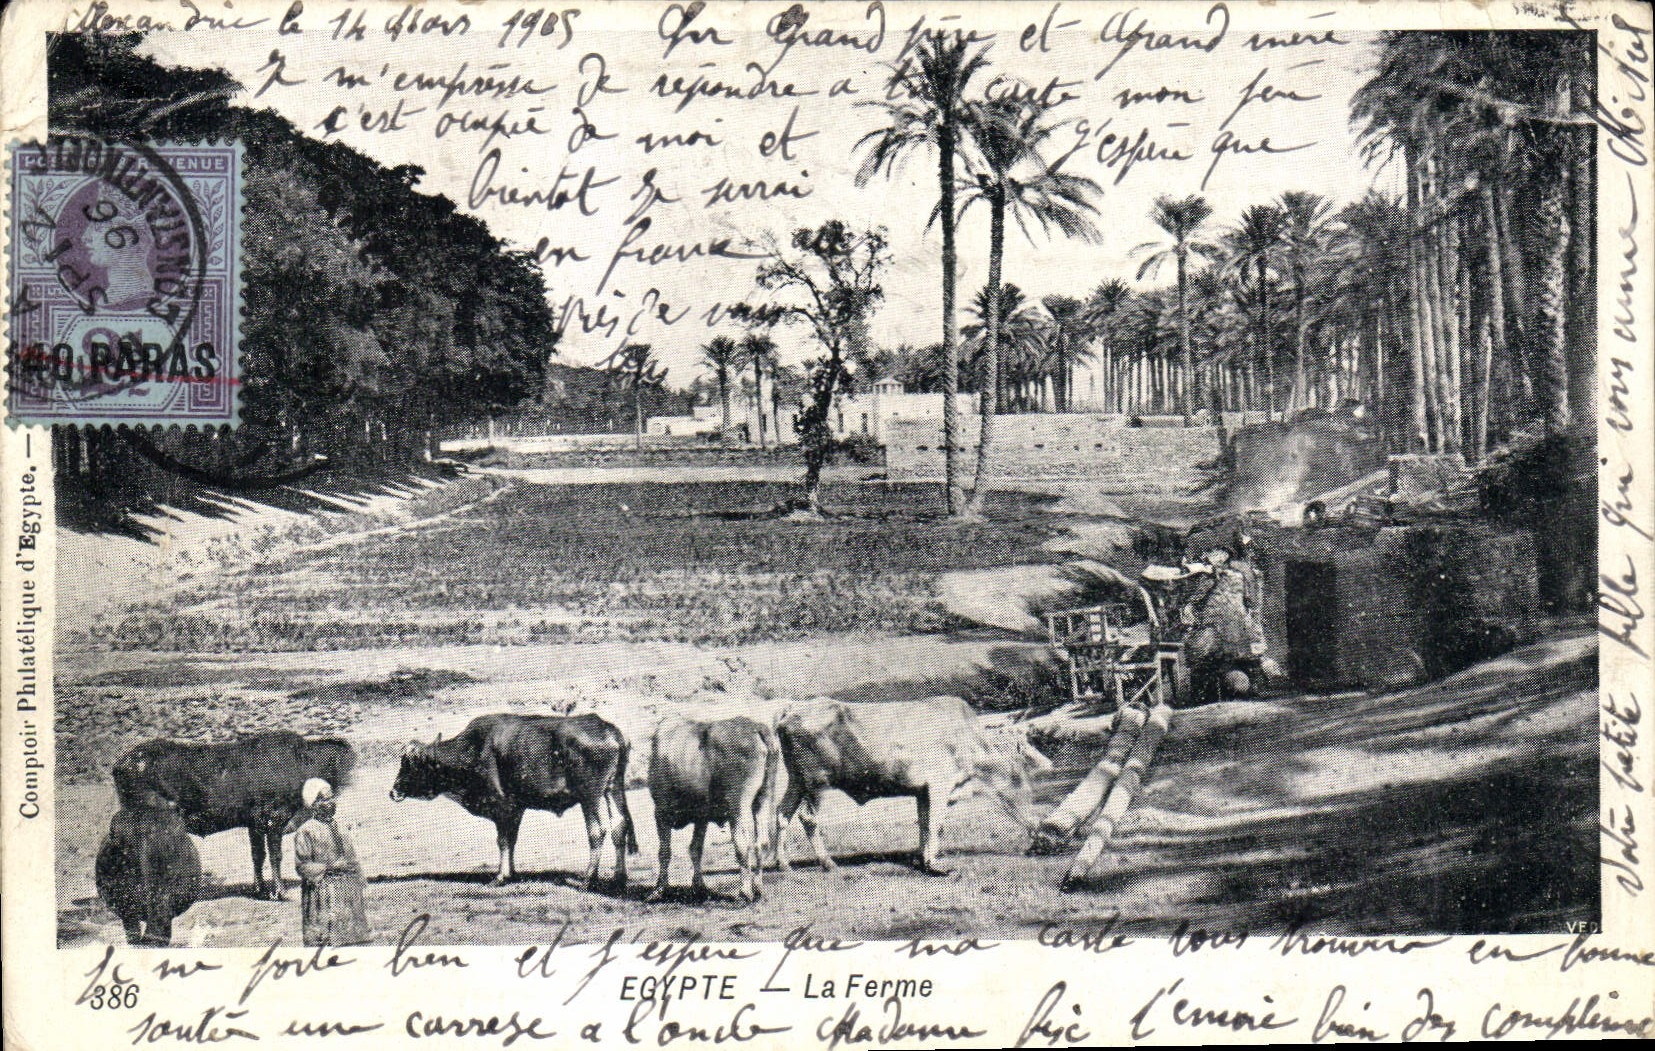 Alexandrie le 14 Mars 1905 Cher Grand père et Grand mère
Je m'empresse de repondre a ta carte mon père
c'est ocupée de moi et J'espère que
bientot je serrai
en france
près de vous
tous
POSTAGE REVENUE
CONSTANTINOPLE
SP 12
96
40 PARAS
Comptoir Philatélique d'Egypte. —
VED
Je me porte bien et j'espere que ma carte vous trouvera en bonne
386
EGYPTE — La Ferme
santée une carresse a l'oncle Madame l'envoie bien des compliments
Votre petite fille qui vous aime